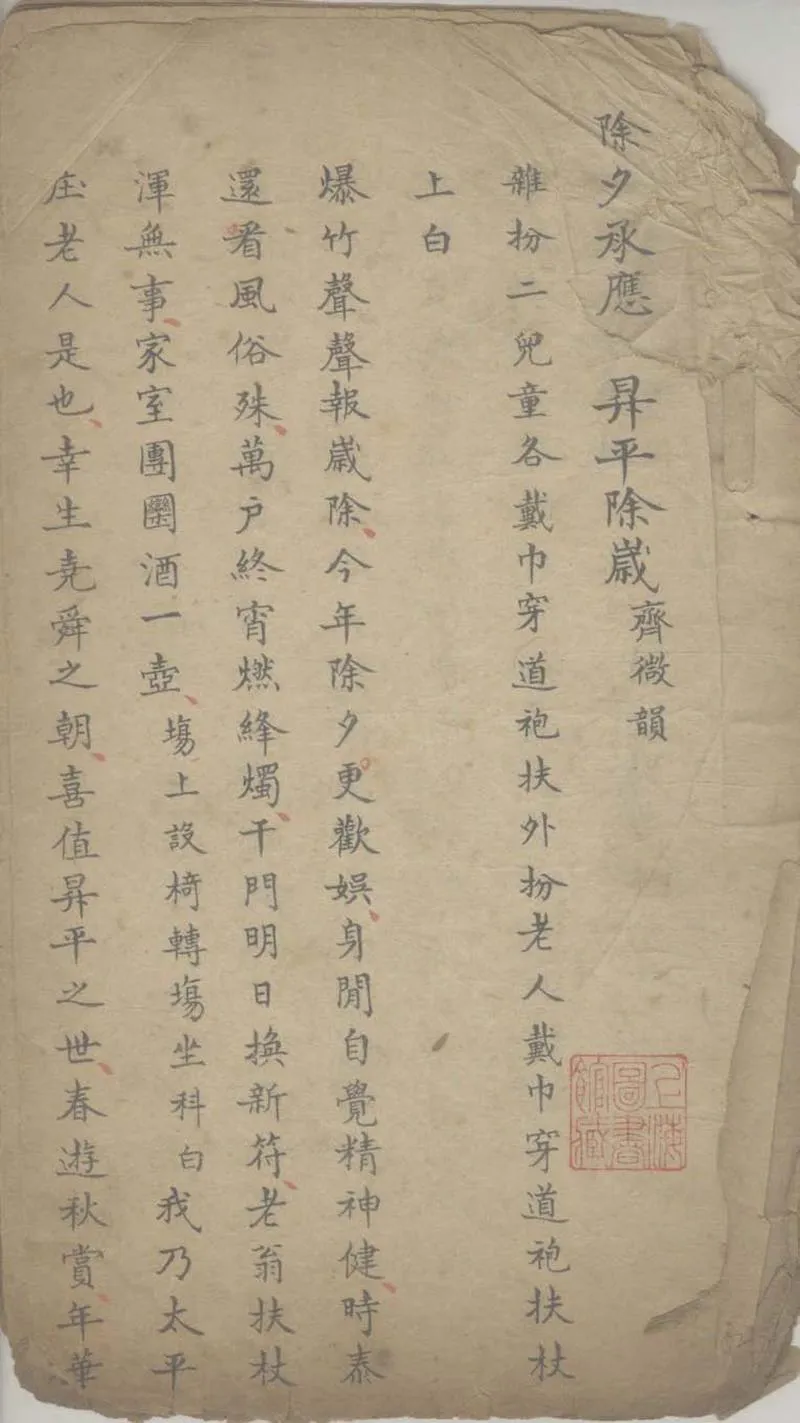 除夕承應　昇平除歲齊微韻
雜扮二兒童各戴巾穿道袍扶外扮老人戴巾穿道袍扶杖
上白
爆竹聲聲報歲除今年除夕更歡娛身閒自覺精神健時泰
還看風俗殊萬户終宵燃絳燭千門明日換新符老翁扶杖
渾無事家室團圞酒一壺塲上設椅轉塲坐科白我乃太平
庄老人是也幸生堯舜之朝喜值昇平之世春遊秋賞年華
上海圖書館藏